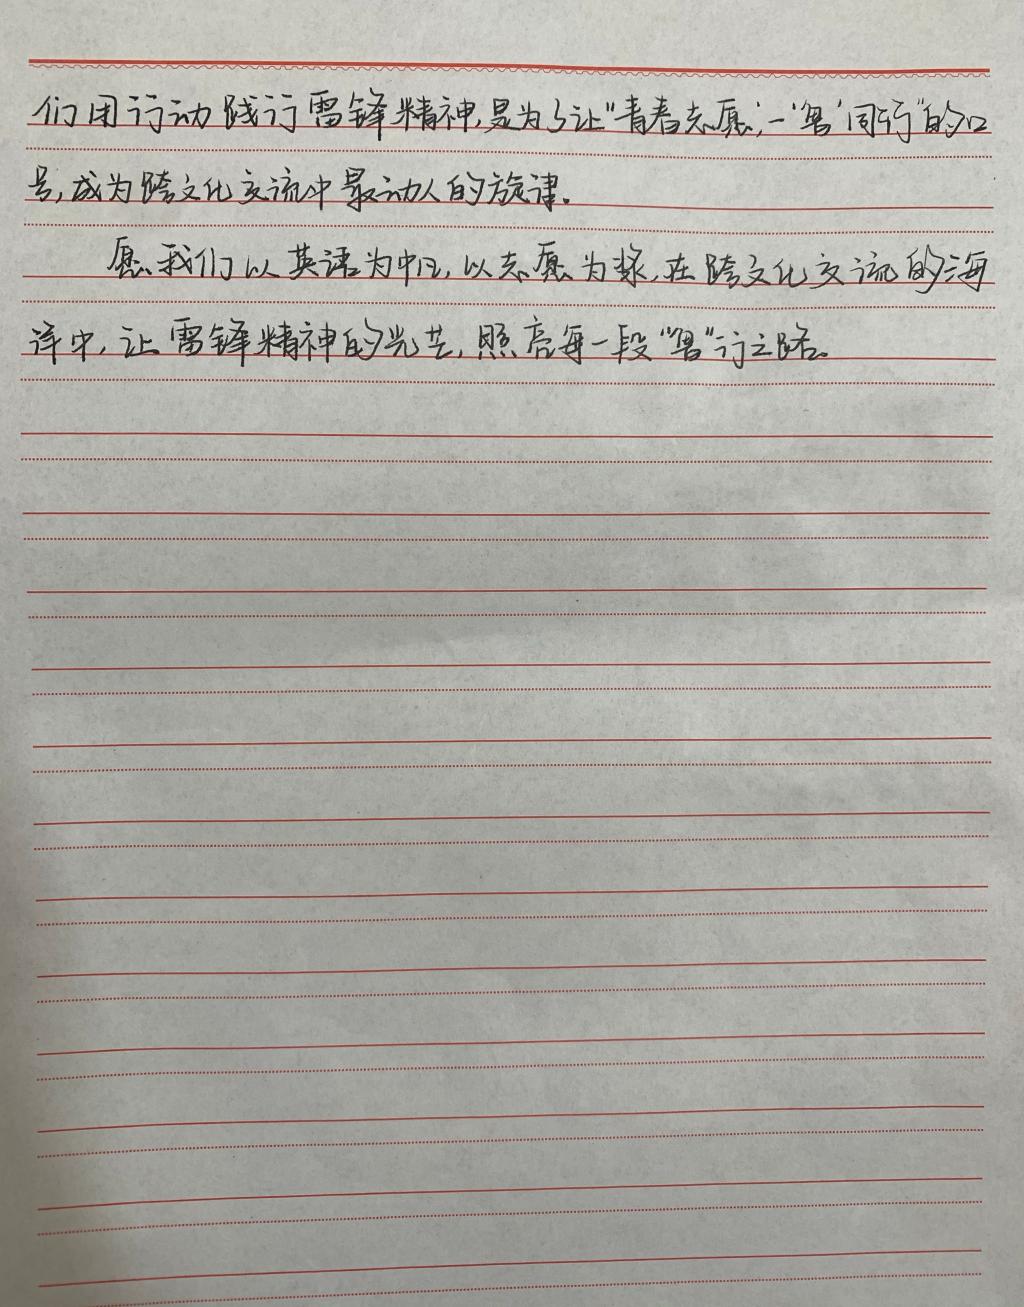 们用行动践行雷锋精神,是为了让“青春志愿,一‘粤’同行”的口
号,成为跨文化交流中最动人的旋律。
愿我们以英语为帆,以志愿为桨,在跨文化交流的海
洋中,让雷锋精神的光芒,照亮每一段“粤”行之路。